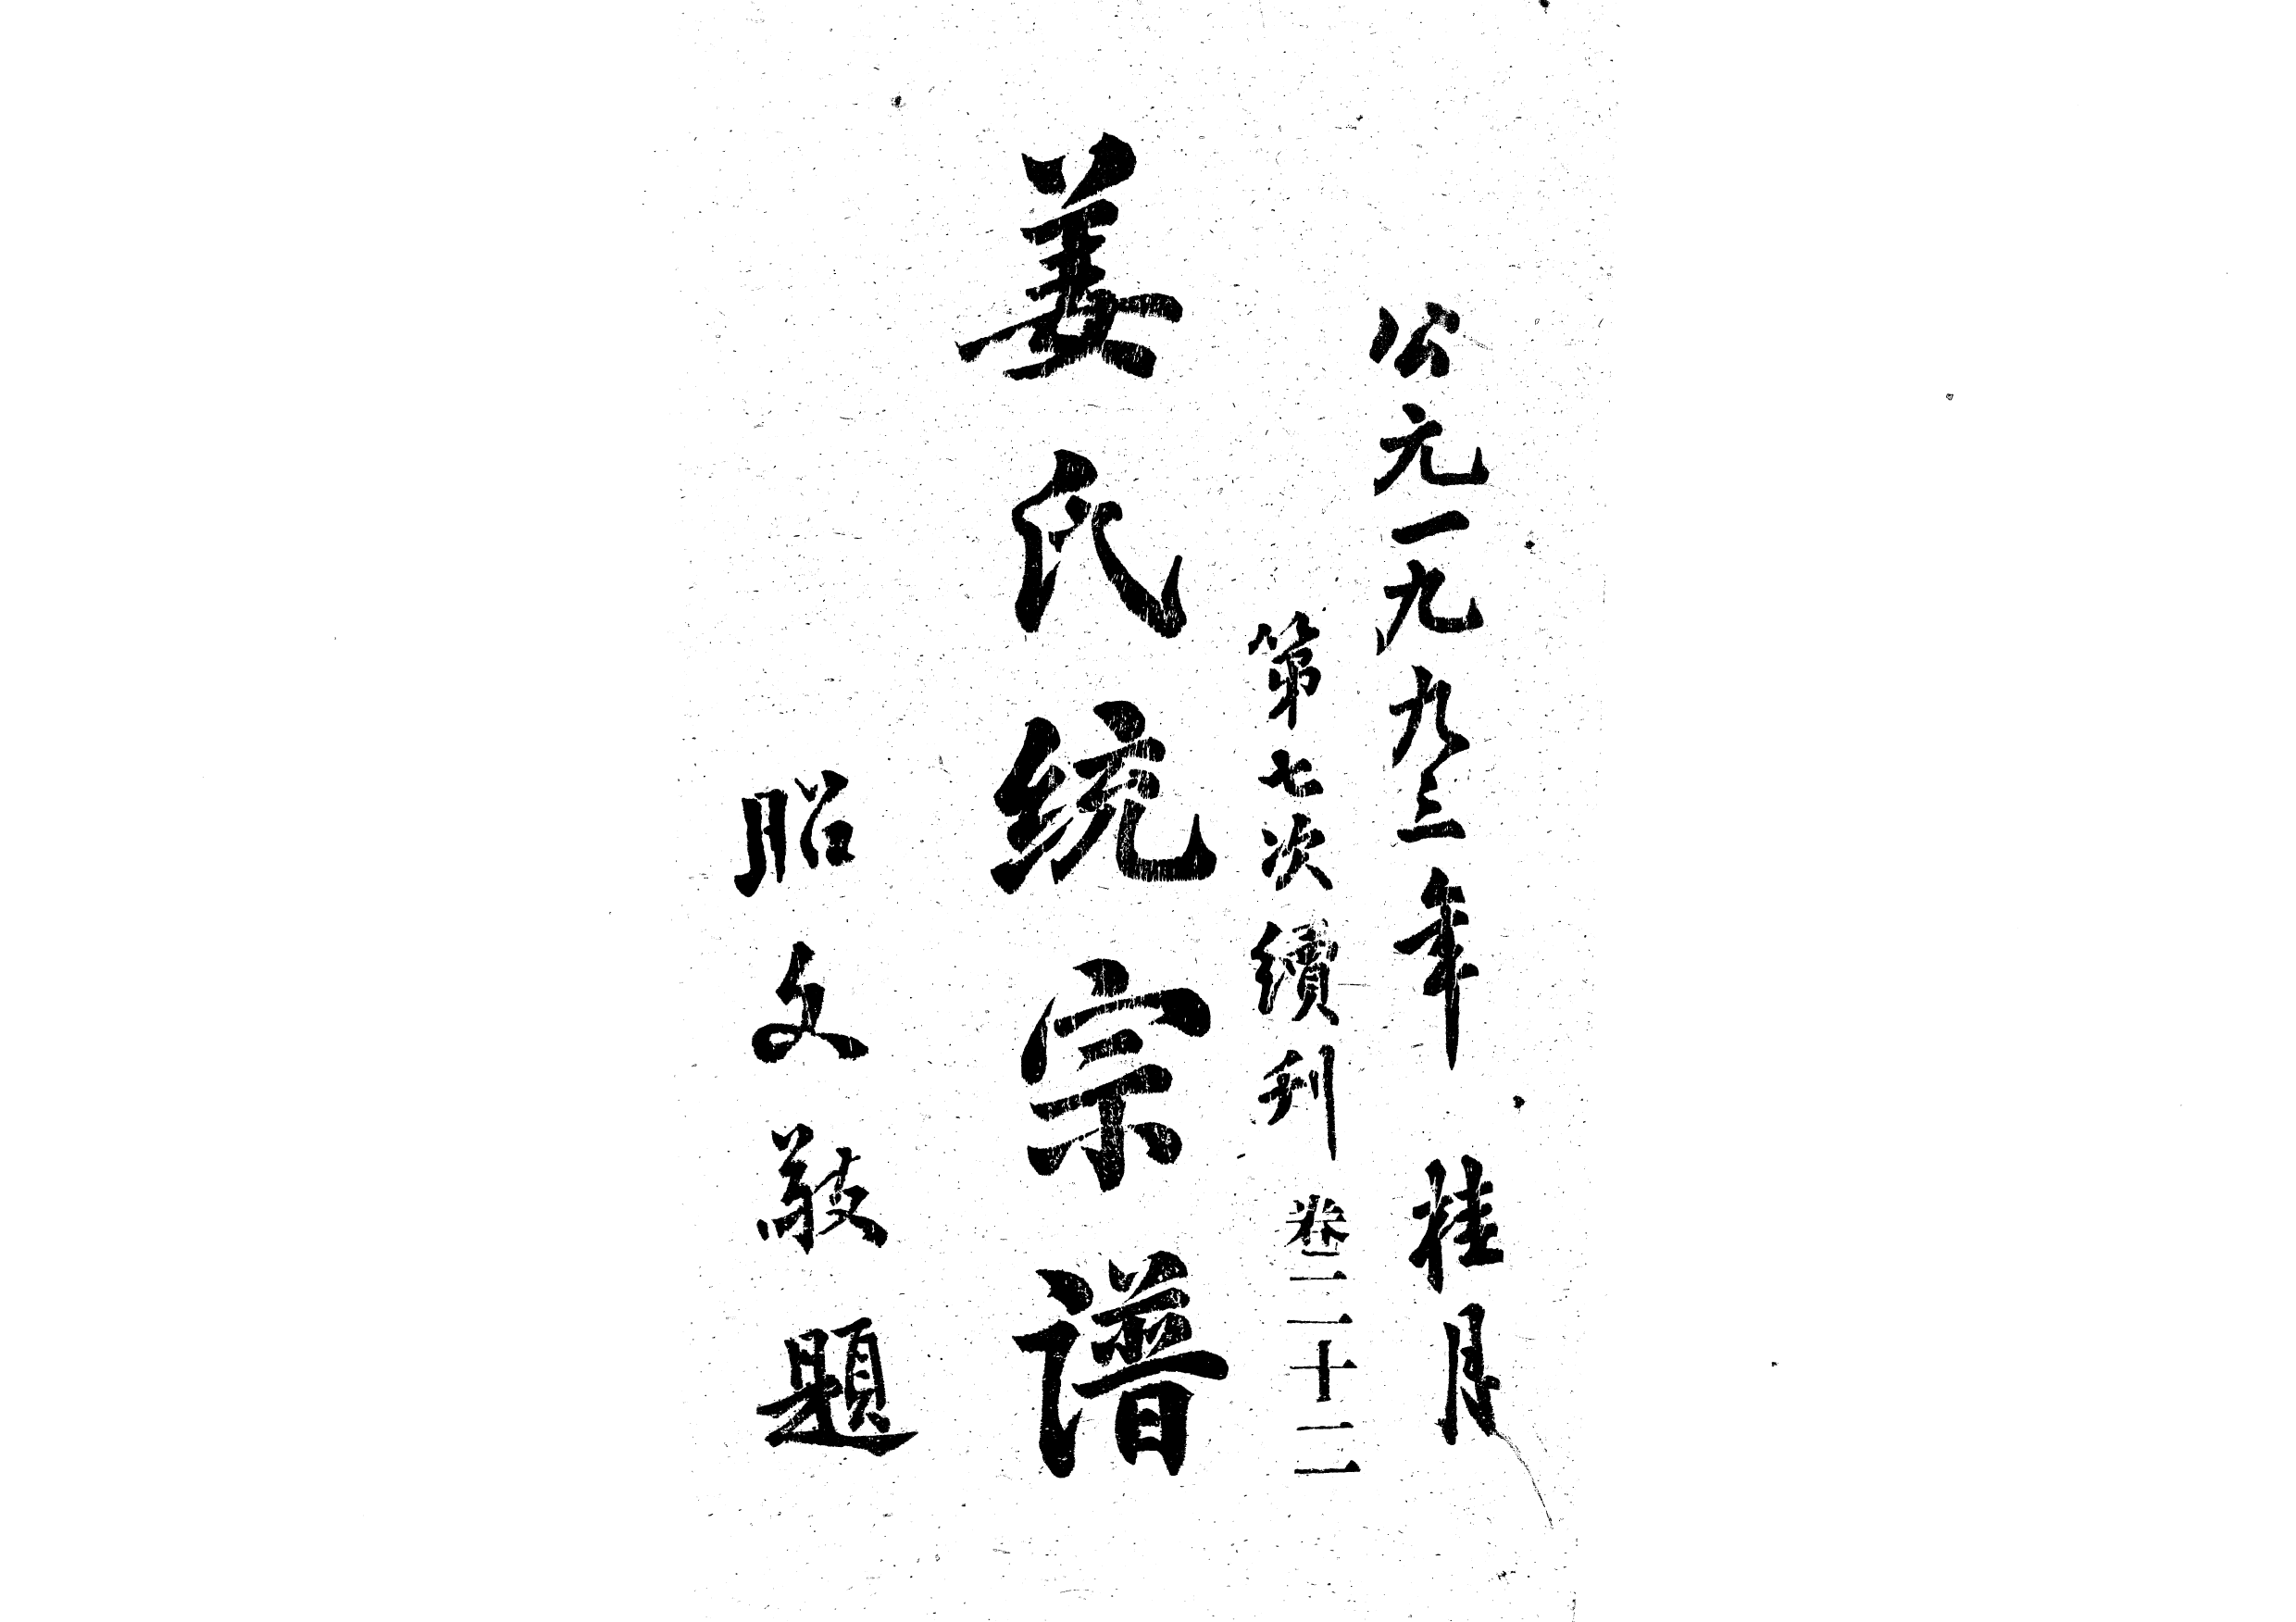 公元一九九三年 桂月
第七次續刊 卷二十二
姜氏统宗谱
昭文敬題